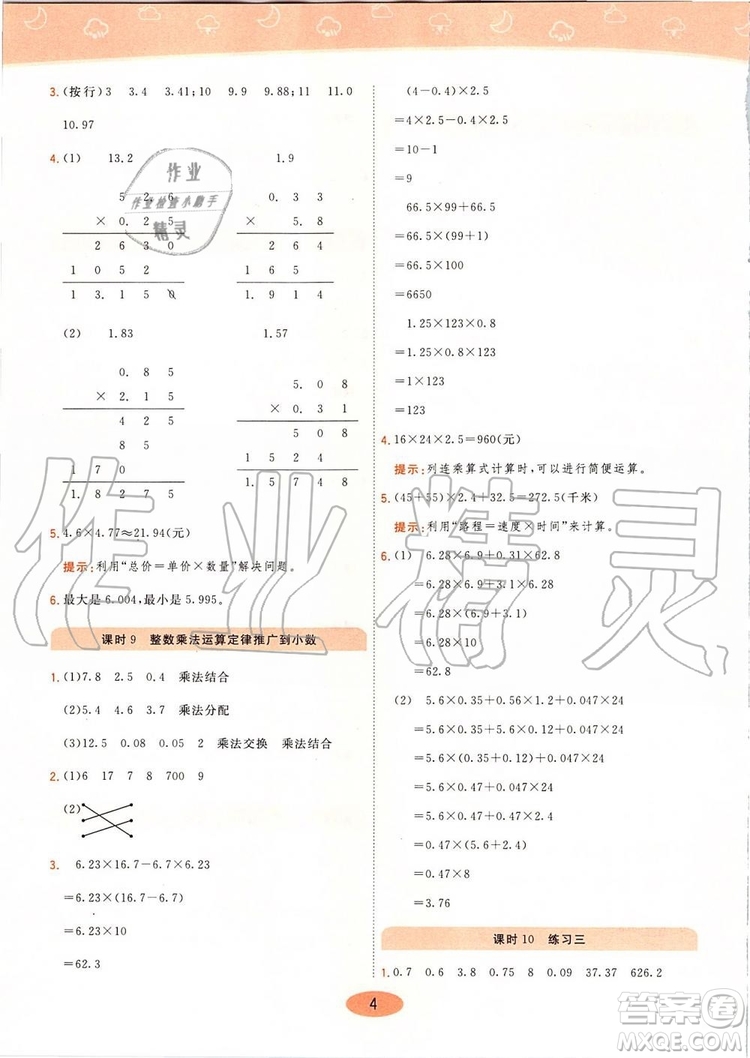 3.(按行)3 3.4 3.41;10 9.9 9.88;11 11.0
10.97
4.(1) 13.2 1.9
5 2. 6
× 0. 2 5
2 6 3 0
1 0 5 2
1 3. 1 5 0
0. 3 3
× 5. 8
2 6 4
1 6 5
1. 9 1 4
(2) 1.83 1.57
0. 8 5
× 2. 1 5
4 2 5
8 5
1 7 0
1. 8 2 7 5
5. 0 8
× 0. 3 1
5 0 8
1 5 2 4
1. 5 7 4 8
5. 4.6×4.77≈21.94(元)
提示:利用“总价=单价×数量”解决问题。
6. 最大是 6.004,最小是 5.995。
课时 9 整数乘法运算定律推广到小数
1.(1)7.8 2.5 0.4 乘法结合
(2)5.4 4.6 3.7 乘法分配
(3)12.5 0.08 0.05 2 乘法交换 乘法结合
2.(1)6 17 7 8 700 9
(2)
3. 6.23×16.7-6.7×6.23
=6.23×(16.7-6.7)
=6.23×10
=62.3
(4-0.4)×2.5
=4×2.5-0.4×2.5
=10-1
=9
66.5×99+66.5
=66.5×(99+1)
=66.5×100
=6650
1.25×123×0.8
=1.25×0.8×123
=1×123
=123
4. 16×24×2.5=960(元)
提示:列连乘算式计算时,可以进行简便运算。
5.(45+55)×2.4+32.5=272.5(千米)
提示:利用“路程=速度×时间”来计算。
6.(1) 6.28×6.9+0.31×62.8
=6.28×6.9+3.1×6.28
=6.28×(6.9+3.1)
=6.28×10
=62.8
(2) 5.6×0.35+0.56×1.2+0.047×24
=5.6×0.35+5.6×0.12+0.047×24
=5.6×(0.35+0.12)+0.047×24
=5.6×0.47+0.047×24
=5.6×0.47+0.47×2.4
=0.47×(5.6+2.4)
=0.47×8
=3.76
课时 10 练习三
1. 0.7 0.6 3.8 0.75 8 0.09 37.37 626.2
4
作业
作业检查小助手
精灵
作业精灵
答案圈
MXQE.COM